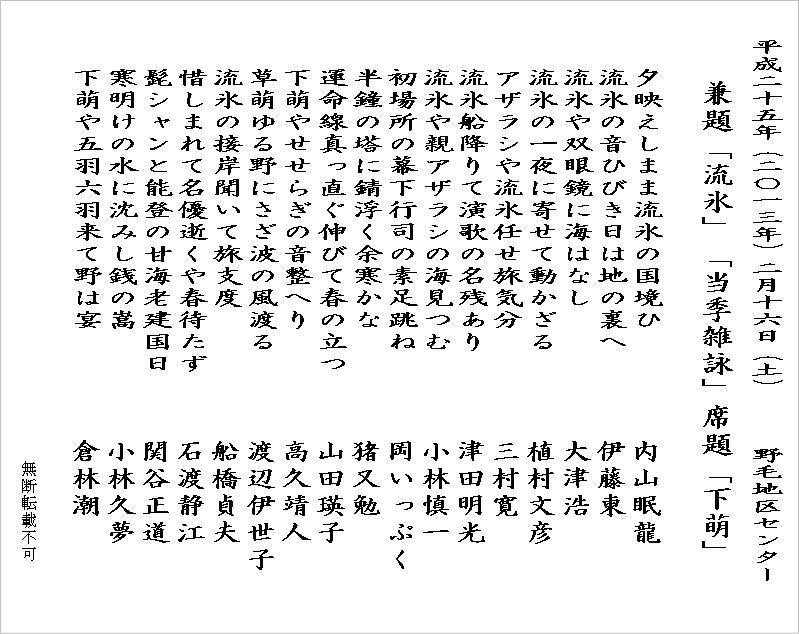 平成二十五年（二〇一三年）二月十六日（土）　野毛地区センター
兼題「流氷」「当季雑詠」席題「下萌」
夕映えしまま流氷の国境ひ　内山眠龍
流氷の音ひびき日は地の裏へ　伊藤東
流氷や双眼鏡に海はなし　大津浩
流氷の一夜に寄せて動かざる　植村文彦
アザラシや流氷任せ旅気分　三村寛
流氷船降りて演歌の名残あり　津田明光
流氷や親アザラシの海見つむ　小林慎一
初場所の幕下行司の素足跳ね　岡いっぷく
半鐘の塔に錆浮く余寒かな　猪又勉
運命線真っ直ぐ伸びて春の立つ　山田瑛子
下萌やせせらぎの音整へり　高久靖人
草萌ゆる野にさざ波の風渡る　渡辺伊世子
流氷の接岸聞いて旅支度　船橋貞夫
惜しまれて名優逝くや春待たず　石渡静江
髭シャンと能登の甘海老建国日　関谷正道
寒明けの水に沈みし銭の嵩　小林久夢
下萌や五羽六羽来て野は宴　倉林潮
無断転載不可